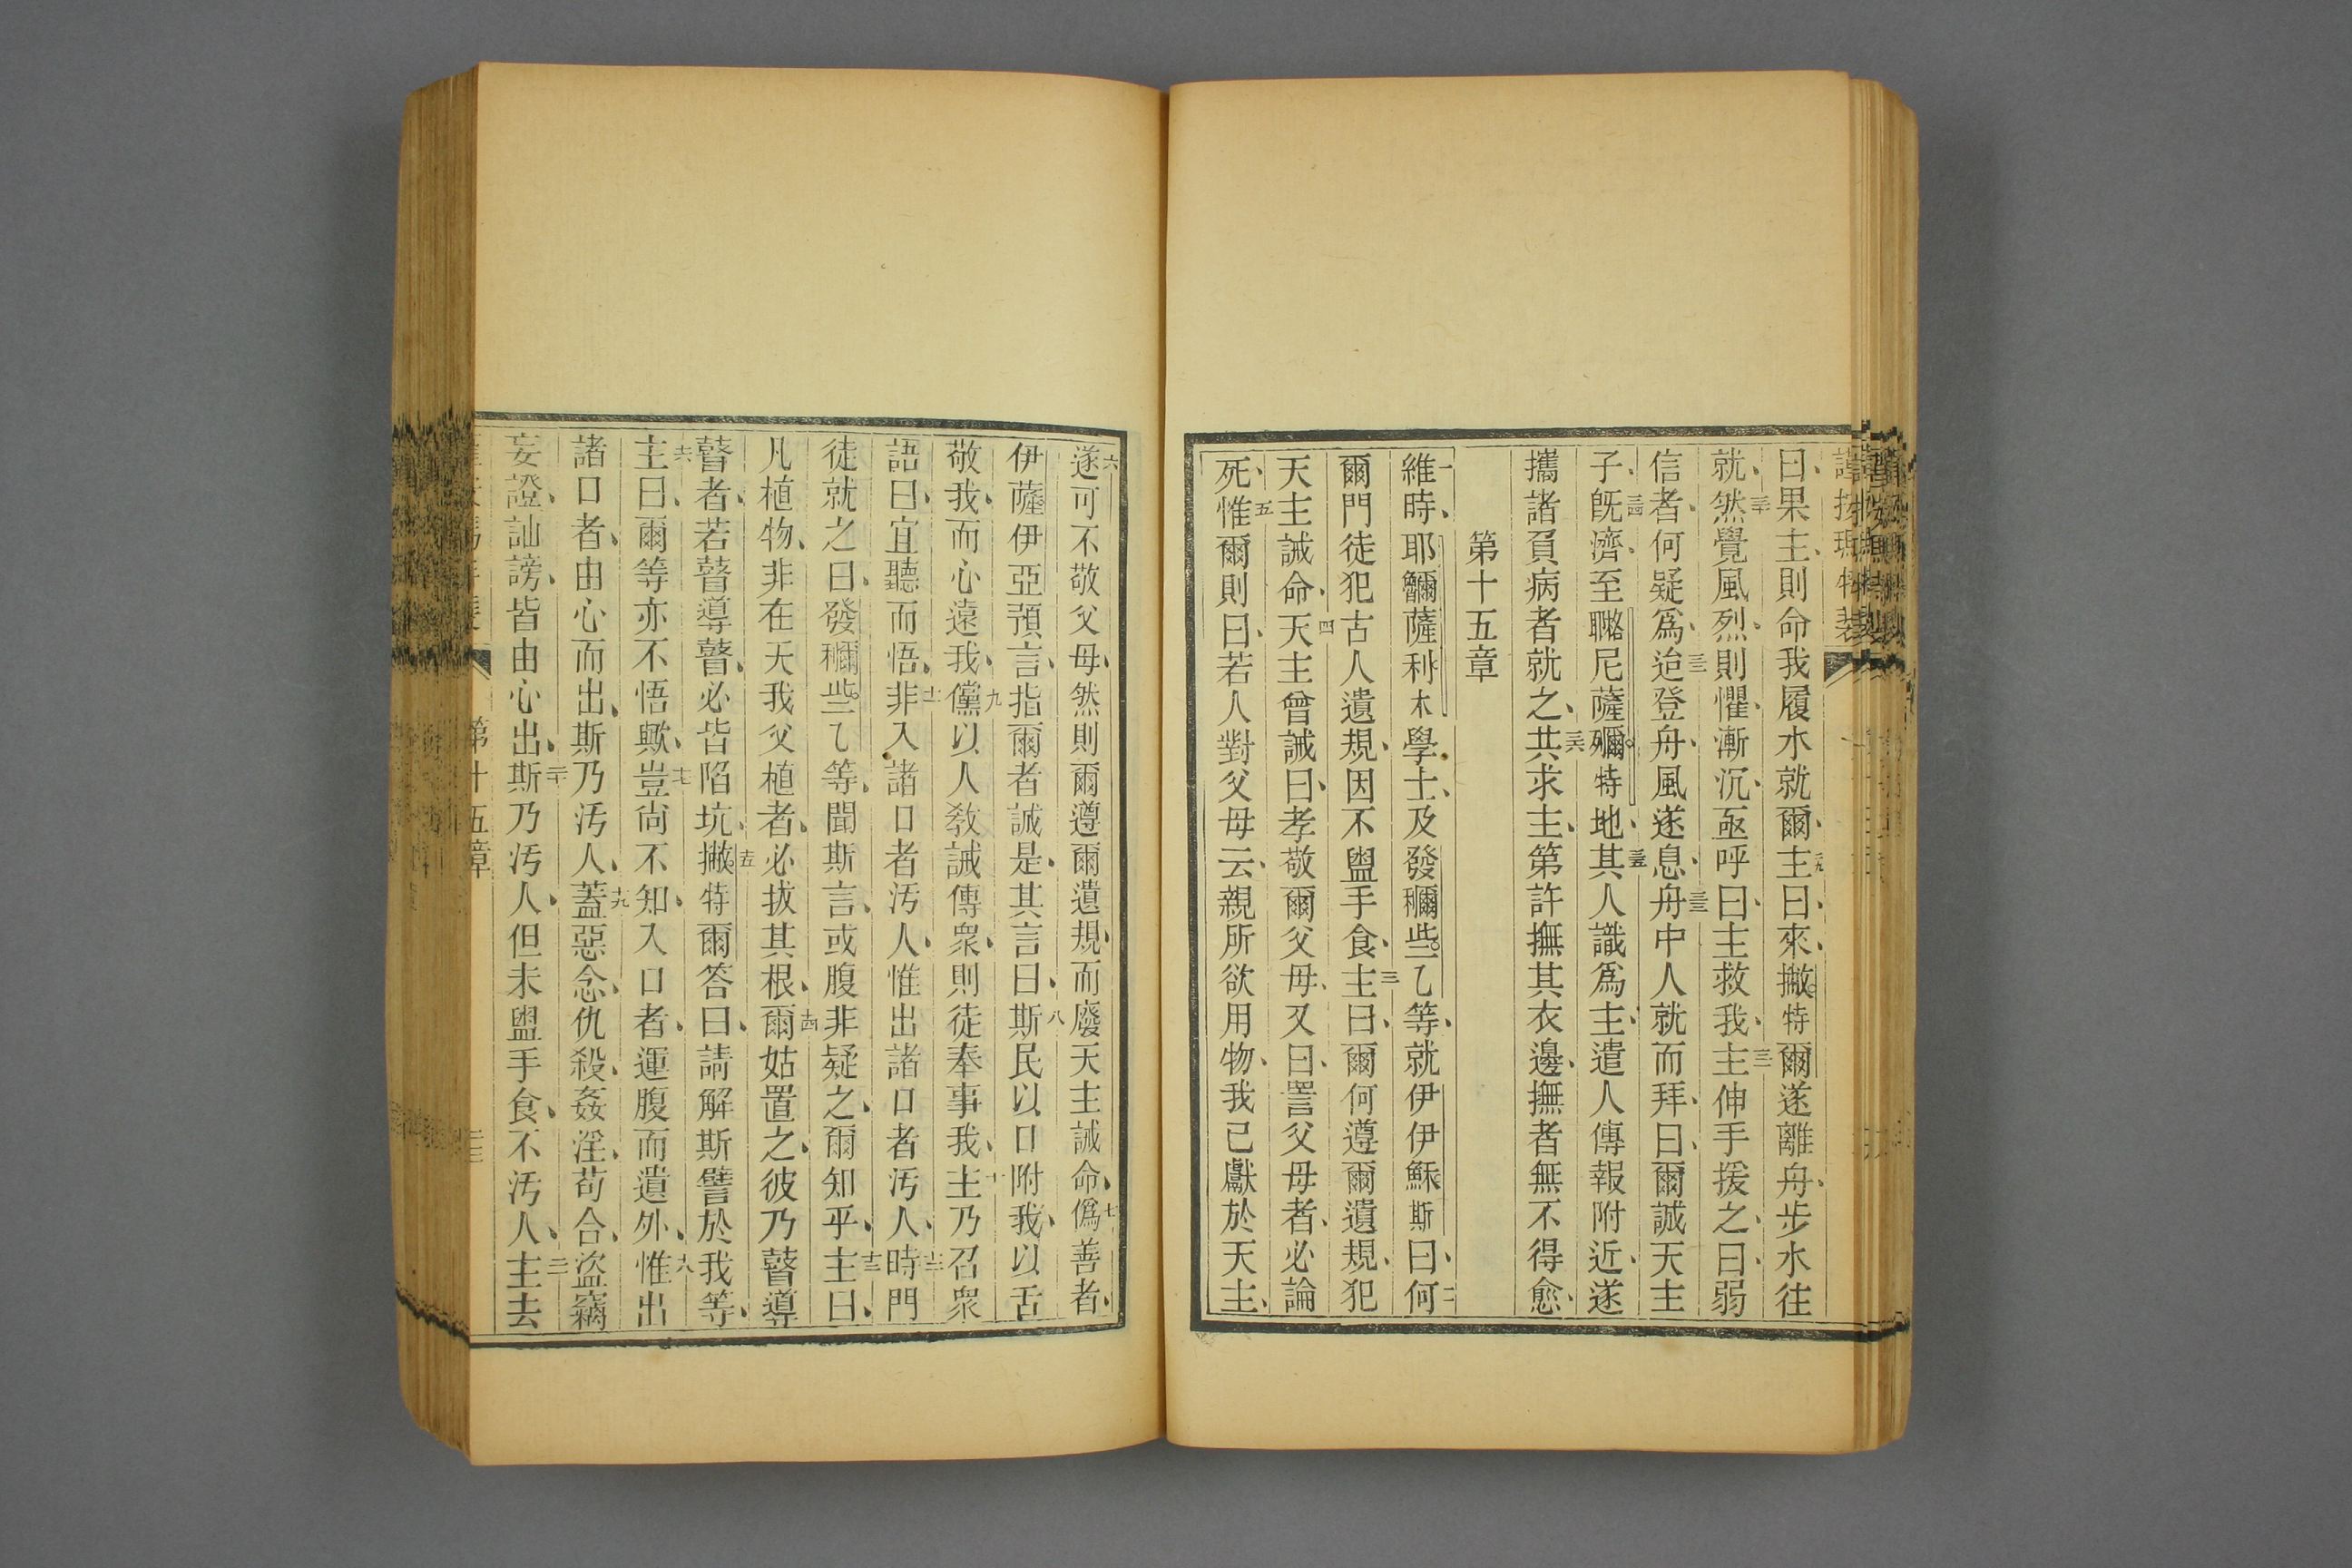 曰、果主、則命我履水就爾、二九主曰、來、撇特爾遂離舟、步水往
就、三十然覺風烈、則懼、漸沉、亟呼曰、主救我、三一主伸手援之、曰、弱
信者、何疑爲、三二迨登舟、風遂息、三三舟中人就而拜、曰、爾誠天主
子、三四旣濟、至聮尼薩殢特地、三五其人識爲主、遣人傳報附近、遂
攜諸負病者就之、三六共求主、第許撫其衣邊、撫者無不得愈、
第十五章
一維時、耶薩利木學士、及發穪些乙等、就伊伊穌斯曰、二何
爾門徒犯古人遺規、因不盥手食、三主曰、爾何遵爾遺規、犯
天主誡命、四天主曾誡曰、孝敬爾父母、又曰、詈父母者、必論
死、五惟爾則曰、若人對父母云、親所欲用物、我已獻於天主、
六遂可不敬父母、然則爾遵爾遺規、而廢天主誡命、七僞善者、
伊薩伊亞預言、指爾者誠是、其言曰、八斯民以口附我、以舌
敬我、而心遠我、九儻以人敎誡傳衆、則徒奉事我、十主乃召衆
語曰、宜聽而悟、十一非入諸口者汚人、惟出諸口者汚人、十二時門
徒就之曰、發穪些乙等、聞斯言、或腹非疑之、爾知乎、十三主曰、
凡植物、非在天我父植者、必拔其根、十四爾姑置之、彼乃瞽導
瞽者、若瞽導瞽、必皆陷坑、十五撇特爾答曰、請解斯譬於我等、
十六主曰、爾等亦不悟歟、十七豈尙不知、入口者、運腹而遺外、十八惟出
諸口者、由心而出、斯乃汚人、十九蓋惡念、仇殺、姦淫、苟合、盜竊
妄證、訕謗、皆由心出、二十斯乃汚人、但未盥手食、不汚人、二一主去
第十五章